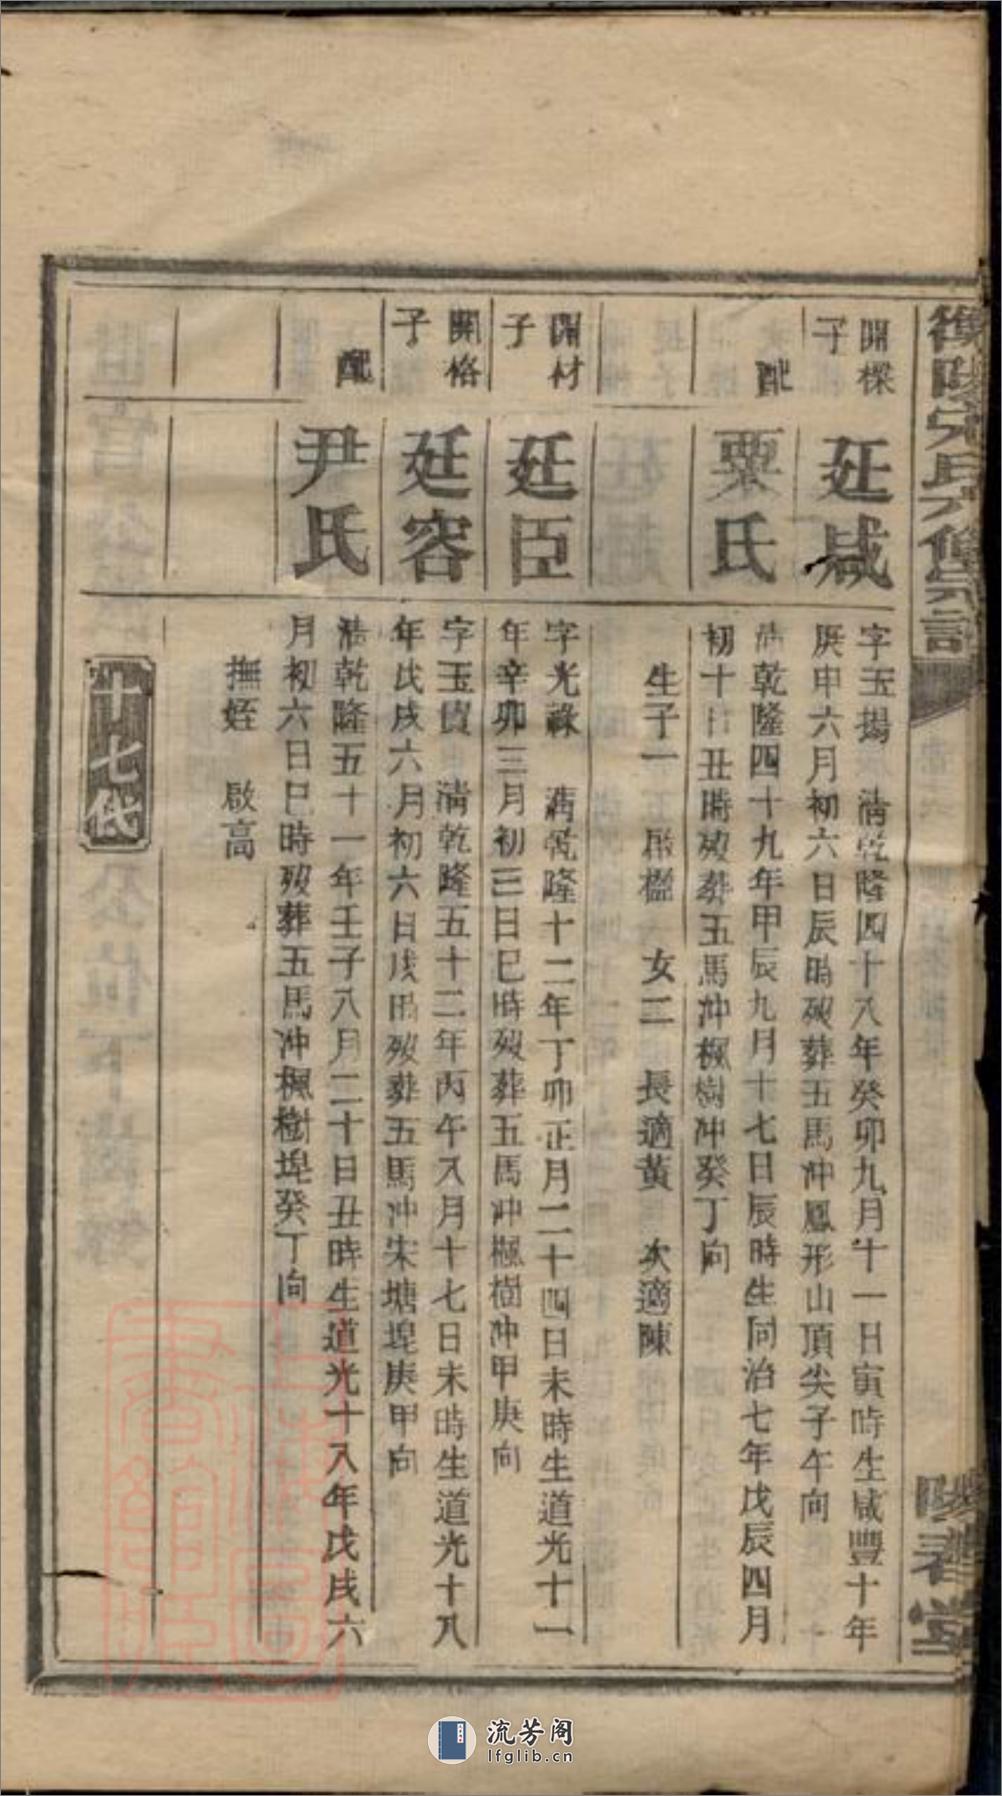 衡陽宋氏六修宗譜
開樑子
廷咸
字玉揚　清乾隆四十八年癸卯九月十一日寅時生咸豐十年
庚申六月初六日辰時歿葬五馬冲鳳形山頂尖子午向
配
粟氏
清乾隆四十九年甲辰九月十七日辰時生同治七年戊辰四月
初十日丑時歿葬五馬冲楓樹冲癸丁向
生子一　啟　女二　長適黃　次適陳
開材子
廷臣
字光祿　清乾隆十二年丁卯正月二十四日未時生道光十一
年辛卯三月初三日巳時歿葬五馬冲楓樹冲甲庚向
開格子
廷容
字玉　清乾隆五十二年丙午八月十七日未時生道光十八
年戊戌六月初六日戌時歿葬五馬冲朱塘埠庚甲向
配
尹氏
清乾隆五十一年壬子八月二十日丑時生道光十八年戊戌六
月初六日巳時歿葬五馬冲楓樹埠癸丁向
撫姪　啟高
十七代
堂
流芳阁
lfglib.cn